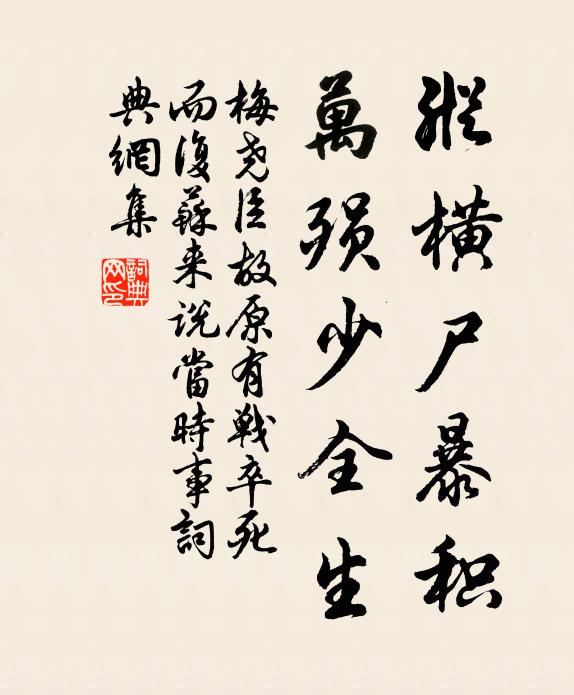 縱橫尸暴积
萬殞少全生
梅尧臣故原有戰卒死
而復蘇来说當時事詞
典網集
詞典网印